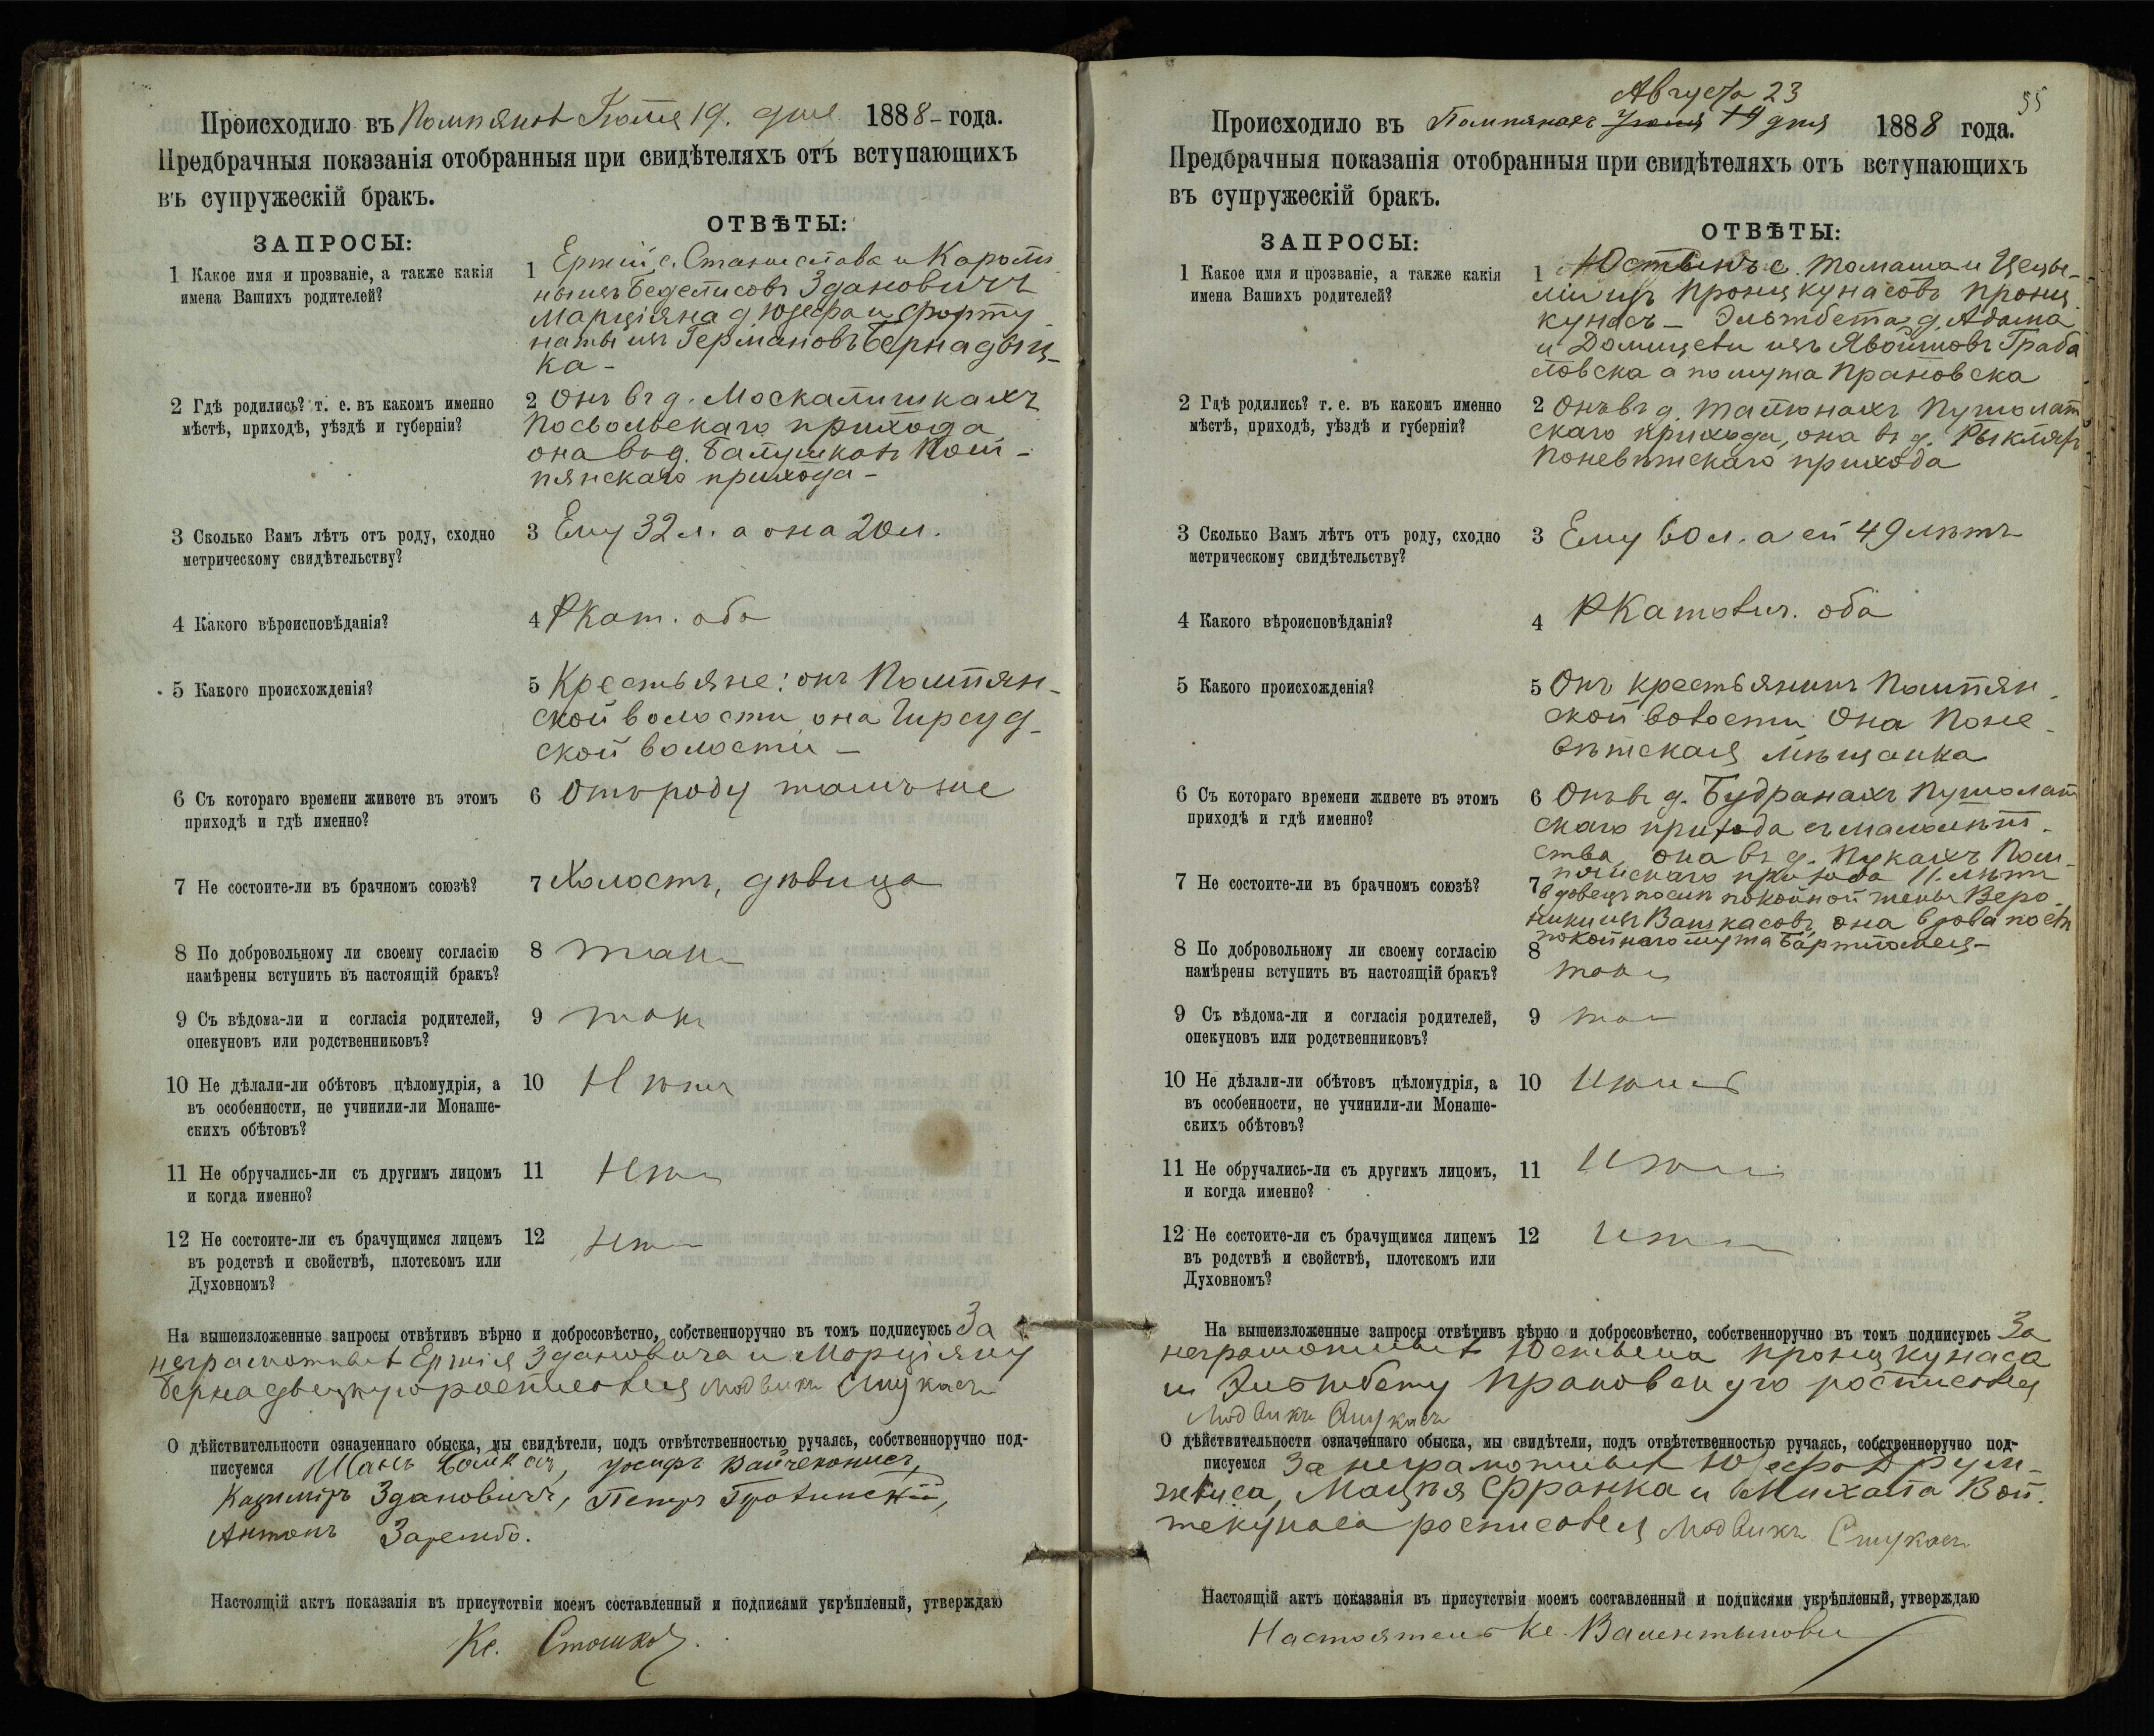 Происходило въ Помпянахъ Іюля 19. дня 1888-года.
Предбрачныя показанія отобранныя при свидѣтеляхъ отъ вступающихъ
въ супружескій бракъ.
ЗАПРОСЫ:
ОТВѢТЫ:
1 Какое имя и прозваніе, а также какія
имена Вашихъ родителей?
1 Ержій с. Станислава и Кароли
ны изъ Здановичъ
Марціяна д. Юзефа и Форту
наты изъ Германовъ Бернадвиц-
ка-
2 Гдѣ родились? т. е. въ какомъ именно
мѣстѣ, приходѣ, уѣздѣ и губерніи?
2 Онъ въ д. Москалишкахъ
Посвольскаго прихода
она въ д. Помп-
пянскаго прихода-
3 Сколько Вамъ лѣтъ отъ роду, сходно
метрическому свидѣтельству?
3 Ему 32 л. а она 20 л.
4 Какого вѣроисповѣданія?
4 РКат. оба
5 Какого происхожденія?
5 Крестьяне: онъ Помпян-
ской волости она Гирсуд-
ской волости-
6 Съ котораго времени живете въ этомъ
приходѣ и гдѣ именно?
6 Отъ роду тамъ же
7 Не состоите-ли въ брачномъ союзѣ?
7 Холостъ, дѣвица
8 По добровольному ли своему согласію
намѣрены вступить въ настоящій бракъ?
8 такъ
9 Съ вѣдома-ли и согласія родителей,
опекуновъ или родственниковъ?
9 такъ
10 Не дѣлали-ли обѣтовъ цѣломудрія, а
въ особенности, не учинили-ли Монаше-
скихъ обѣтовъ?
10 Нѣтъ
11 Не обручались-ли съ другимъ лицомъ
и когда именно?
11 Нѣтъ
12 Не состоите-ли съ брачущимся лицемъ
въ родствѣ и свойствѣ, плотскомъ или
Духовномъ?
12 Нѣтъ
На вышеизложенные запросы отвѣтивъ вѣрно и добросовѣстно, собственноручно въ томъ подписуюсь За
неграмотныхъ Ержія Здановича и Марціяну
Бернадвицкую росписался Людвикъ Стукасъ
О дѣйствительности означеннаго обыска, мы свидѣтели, подъ отвѣтственностью ручаясь, собственноручно под-
писуемся Іосифъ Вайчеконисъ,
Казиміръ Здановичъ, Петръ
Антонъ Зарембо.
Настоящій актъ показанія въ присутствіи моемъ составленный и подписями укрѣпленый, утверждаю
Кс.
55
Августа 23
Происходило въ Помпянахъ Іюля 19 дня 1888 года.
Предбрачныя показанія отобранныя при свидѣтеляхъ отъ вступающихъ
въ супружескій бракъ.
ЗАПРОСЫ:
ОТВѢТЫ:
1 Какое имя и прозваніе, а также какія
имена Вашихъ родителей?
1 Юстынъ с. Томаша и Цецы-
ліи изъ Пронцкунасовъ Пронц
кунасъ- Эльжбета д. Адама
и Домицели изъ Явойшовъ Граба
ловска а по мужа Прановска
2 Гдѣ родились? т. е. въ какомъ именно
мѣстѣ, приходѣ, уѣздѣ и губерніи?
2 Онъ въ д. Пушолат
скаго прихода, она въ д.
Поневѣжскаго прихода
3 Сколько Вамъ лѣтъ отъ роду, сходно
метрическому свидѣтельству?
3 Ему 60 л. а ей 49 лѣтъ
4 Какого вѣроисповѣданія?
4 РКатолич. оба
5 Какого происхожденія?
5 Онъ крестьянинъ Помпян
ской волости Она Поне-
вѣжская мѣщанка
6 Съ котораго времени живете въ этомъ
приходѣ и гдѣ именно?
6 Онъ въ д. Будранахъ Пушолат
скаго прихода съ малолѣт-
ства, она въ д. Пукахъ Пом-
пянскаго прихода 11. лѣтъ
7 Не состоите-ли въ брачномъ союзѣ?
7 вдовецъ послѣ покойной жены Веро-
ники изъ Вашкасовъ, она вдова послѣ
покойнаго мужа Бартломея-
8 По добровольному ли своему согласію
намѣрены вступить въ настоящій бракъ?
8 такъ
9 Съ вѣдома-ли и согласія родителей,
опекуновъ или родственниковъ?
9 такъ
10 Не дѣлали-ли обѣтовъ цѣломудрія, а
въ особенности, не учинили-ли Монаше-
скихъ обѣтовъ?
10 Нѣтъ
11 Не обручались-ли съ другимъ лицомъ,
и когда именно?
11 Нѣтъ
12 Не состоите-ли съ брачущимся лицемъ
въ родствѣ и свойствѣ, плотскомъ или
Духовномъ?
12 Нѣтъ
На вышеизложенные запросы отвѣтивъ вѣрно и добросовѣстно, собственноручно въ томъ подписуюсь За
неграмотныхъ Юстына Пронцкунаса
и Эльжбету Прановскую росписался
Людвикъ Стукасъ
О дѣйствительности означеннаго обыска, мы свидѣтели, подъ отвѣтственностью ручаясь, собственноручно под-
писуемся За неграмотныхъ Юзефа
Мацѣя Франка и Михала Вой-
текунаса росписался Людвикъ Стукасъ
Настоящій актъ показанія въ присутствіи моемъ составленный и подписями укрѣпленый, утверждаю
Настоятель Кс. Валентыновъ